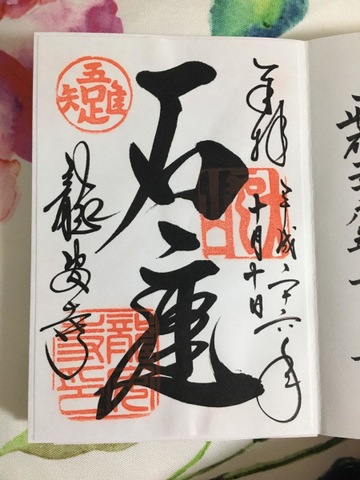 奉拝
平成二十六年
十月十日
石庭
吾唯足知
龍安寺
龍安寺印